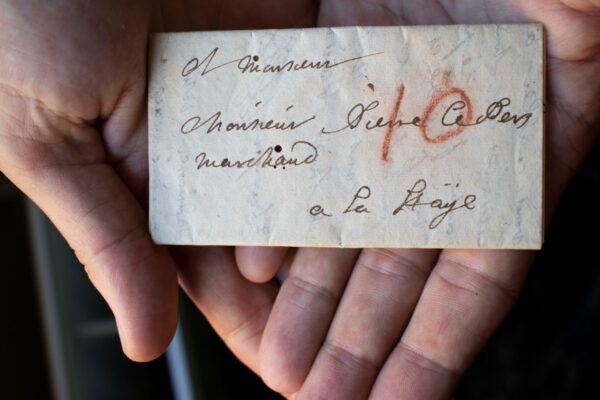 A Monsieur
Monsieur Pierre Le Pers
10
marchand
a La Haÿe